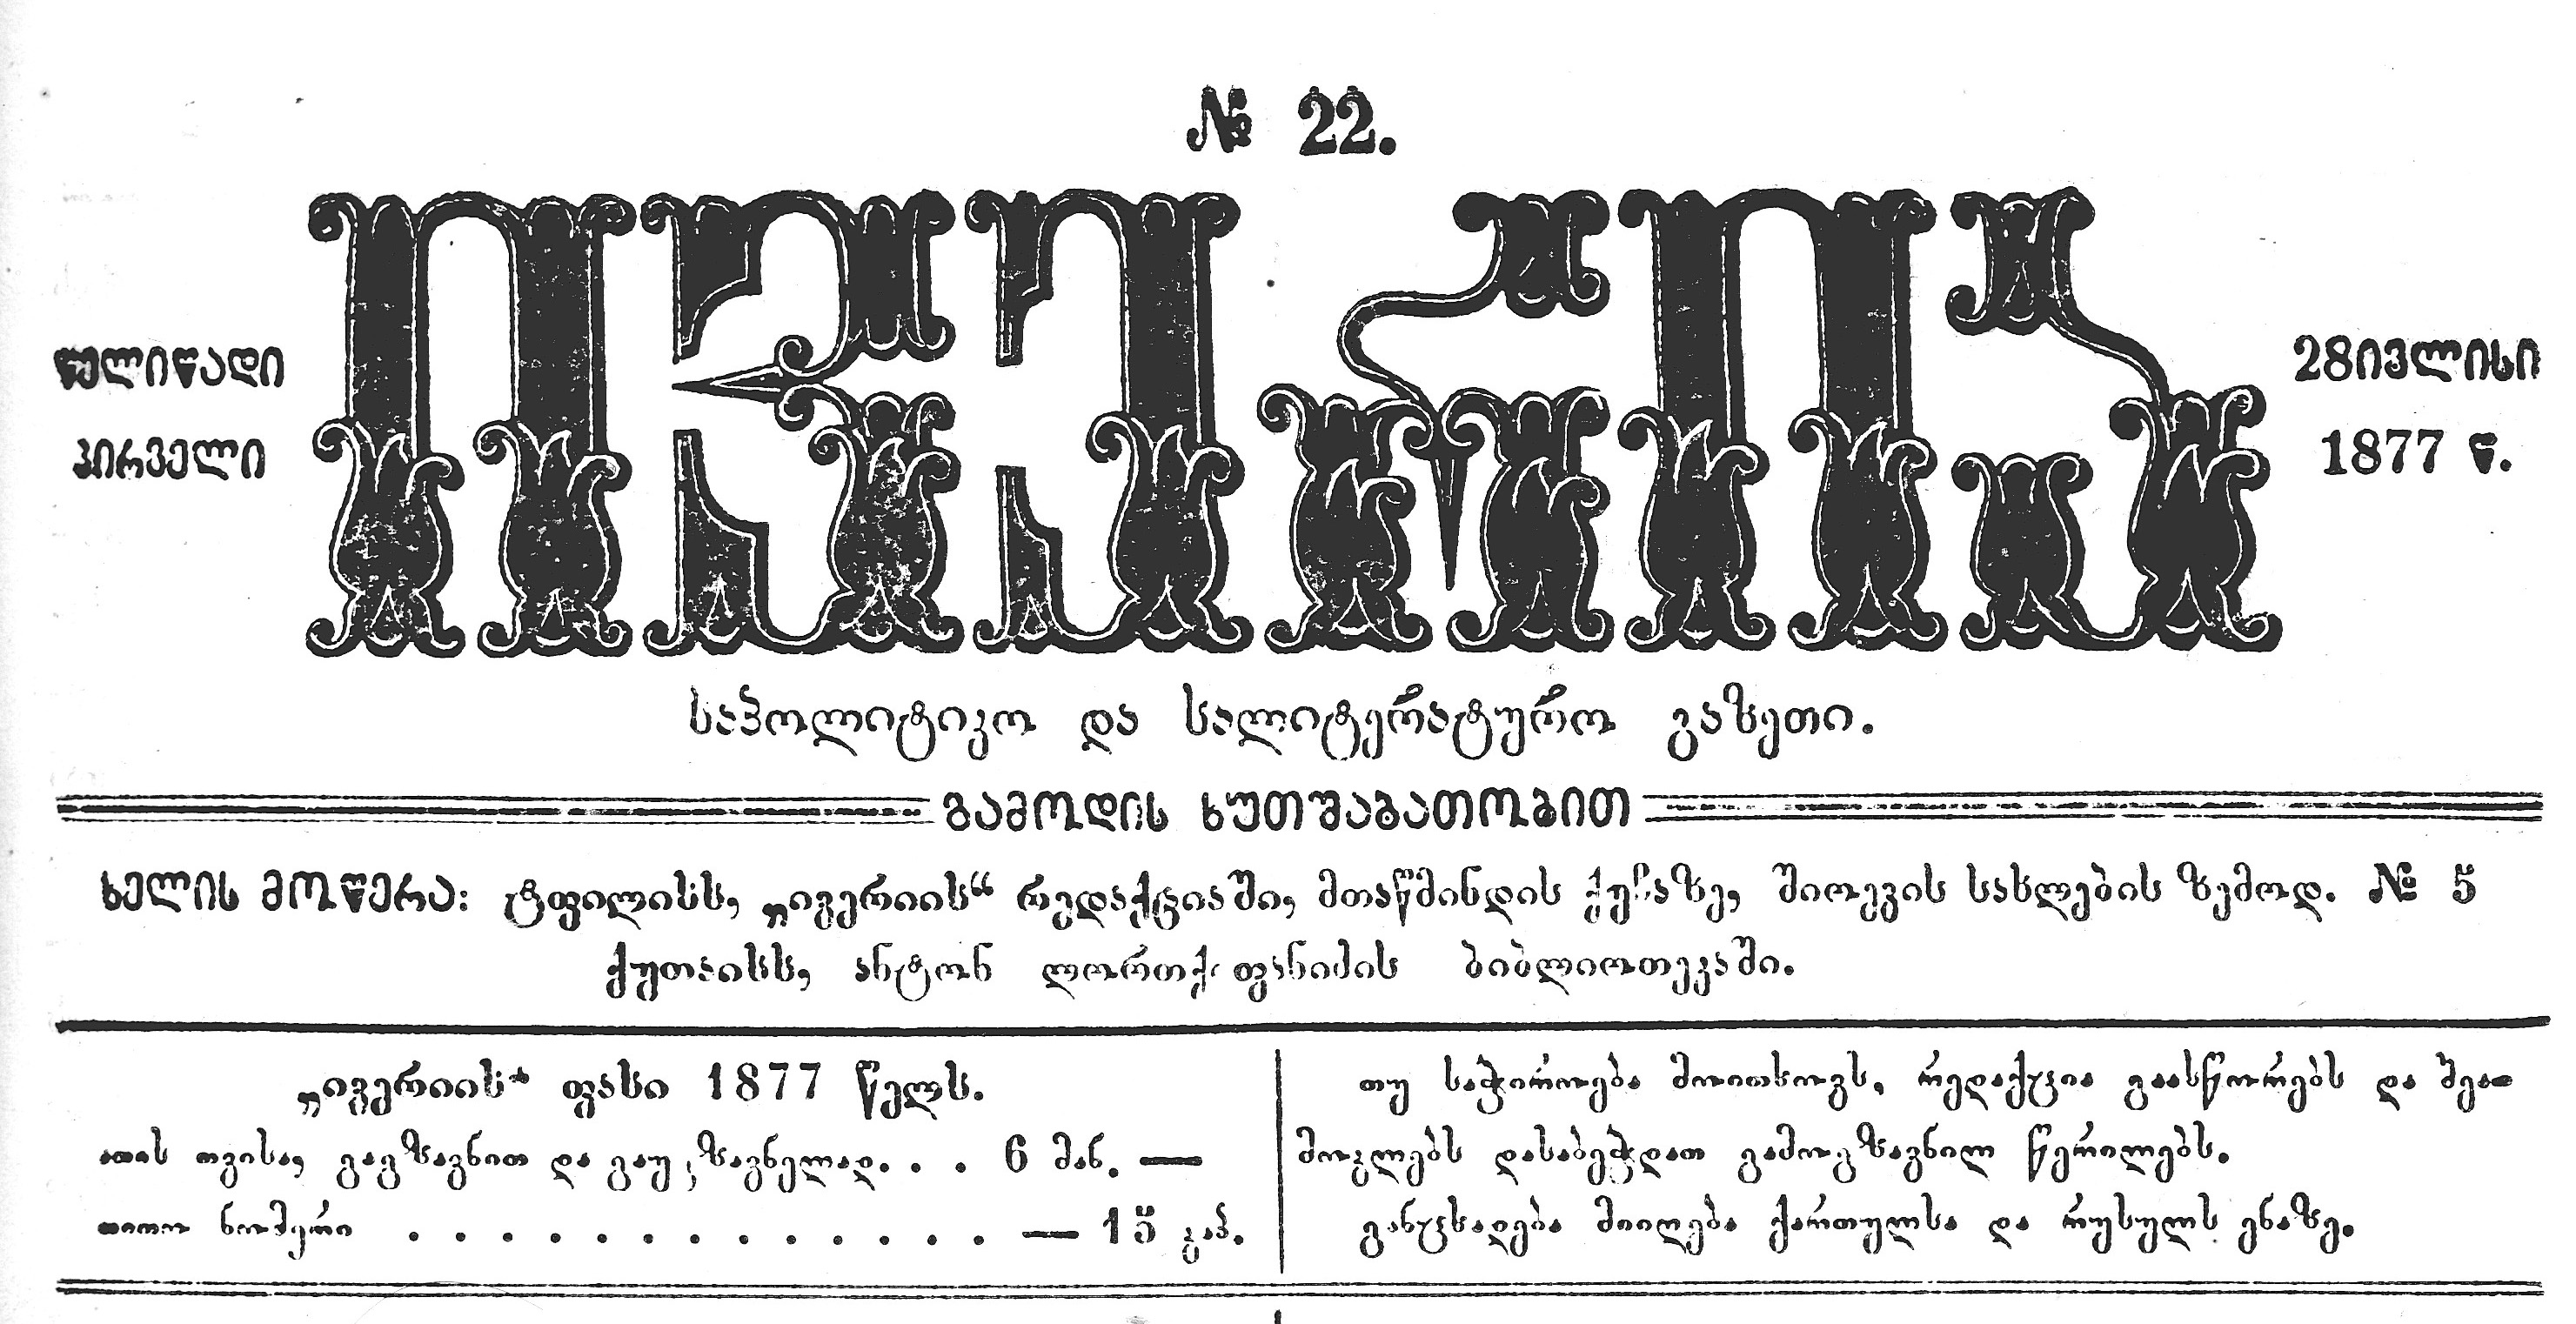 № 22.
ივერია
წელიწადი
პირველი
28 ივლისი
1877 წ.
საპოლიტიკო და სალიტერატურო გაზეთი.
გამოდის ხუთშაბათობით
ხელის მოწერა: ტფილისს, „ივერიის“ რედაქციაში, მთაწმინდის ქუჩაზე, შიოევის სახლების ზემოდ. № 5
ქუთაისს, ანტონ ლორთქიფანიძის ბიბლიოთეკაში.
„ივერიის“ ფასი 1877 წელს.
ათის თვისა, გაგზავნით და გაუგზავნელად. . . 6 მან. —
თითო ნომერი . . . . . . . . . . . . . — 15 კაპ.
თუ საჭიროება მოითხოვს, რედაქცია გაასწორებს და შეა-
მოკლებს დასაბეჭდათ გამოგზავნილ წერილებს.
განცხადება მიიღება ქართულსა და რუსულს ენაზე.